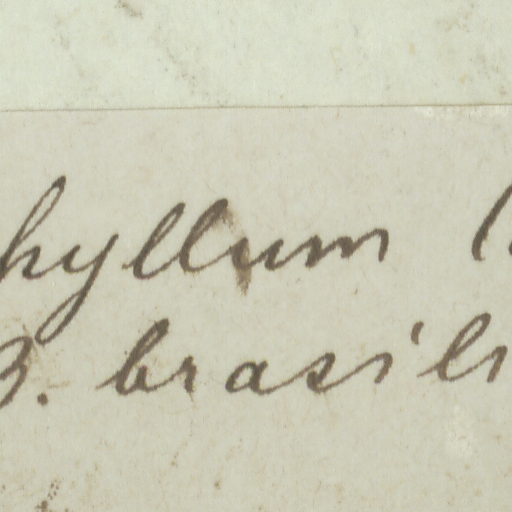 hyllum (
B. brasili